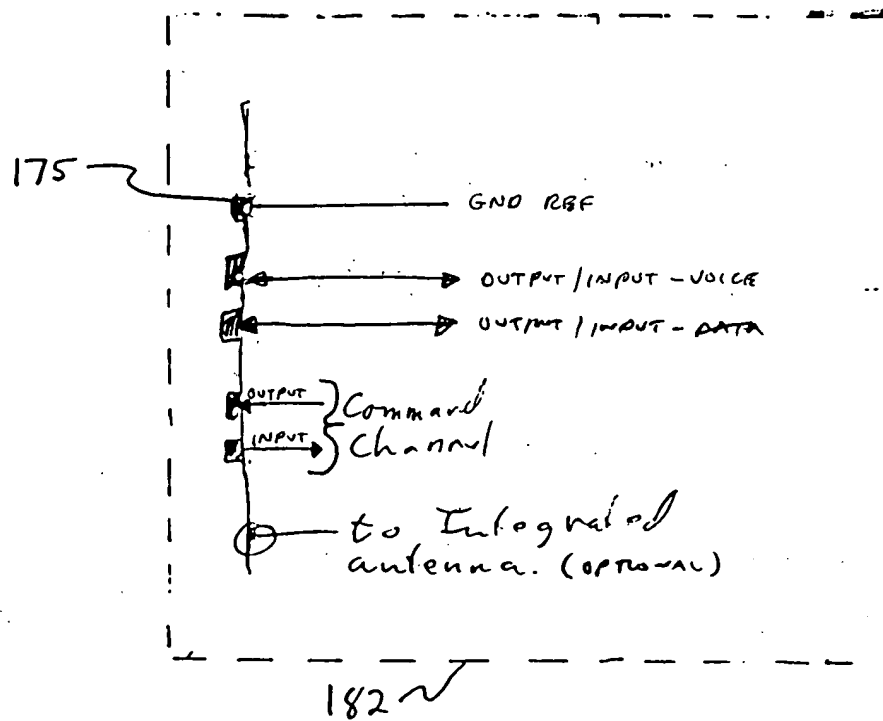 175
GND REF
OUTPUT/INPUT-VOICE
OUTPUT/INPUT-DATA
OUTPUT
Command
INPUT
Channel
to Integrated
antenna. (OPTIONAL)
182